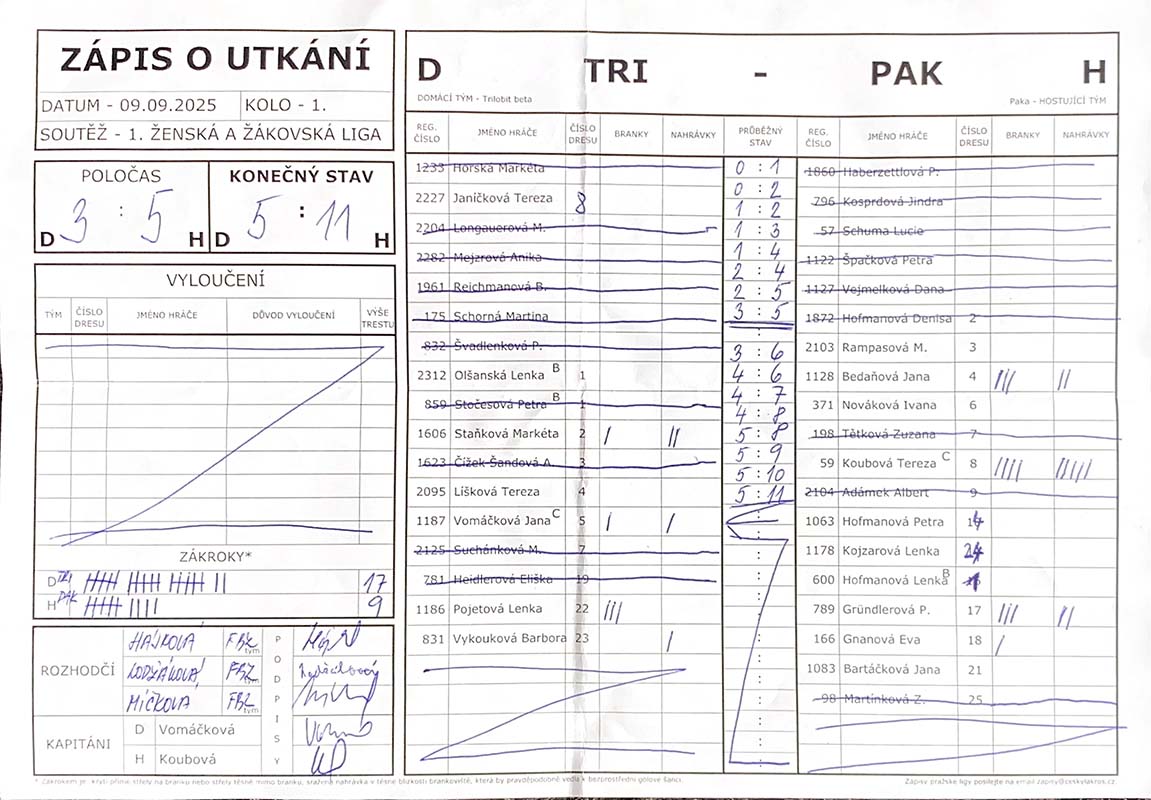 ZÁPIS O UTKÁNÍ
DATUM - 09.09.2025 KOLO - 1.
SOUTĚŽ - 1. ŽENSKÁ A ŽÁKOVSKÁ LIGA
POLOČAS KONEČNÝ STAV
3 : 5 5 : 11
D H D H
VYLOUČENÍ
TÝM ČÍSLO DRESU JMÉNO HRÁČE DŮVOD VYLOUČENÍ VÝŠE TRESTU
ZÁKROKY*
D TRI 17
H PAK 9
ROZHODČÍ
HÁJKOVÁ FBŁ tým
FBŁ
MÍČKOVÁ FBŁ tým
PODPISY
KAPITÁNI
D Vomáčková
H Koubová
D TRI - PAK H
DOMÁCÍ TÝM - Trilobit beta Paka - HOSTUJÍCÍ TÝM
REG. ČÍSLO JMÉNO HRÁČE ČÍSLO DRESU BRANKY NAHRÁVKY PRŮBĚŽNÝ STAV REG. ČÍSLO JMÉNO HRÁČE ČÍSLO DRESU BRANKY NAHRÁVKY
1233 Horská Markéta
2227 Janíčková Tereza 8
2204 Longauerová M.
2282 Mejzrová Anika
1961 Reichmanová B.
175 Schorná Martina
832 Švadlenková P.
2312 Olšanská Lenka B 1
859 Stočesová Petra B 1
1606 Staňková Markéta 2 / //
1623 Čížek Šandová A. 3
2095 Líšková Tereza 4
1187 Vomáčková Jana C 5 / /
2125 Suchánková M. 7
781 Heidlerová Eliška 19
1186 Pojetová Lenka 22 ///
831 Vykouková Barbora 23 /
0 : 1
0 : 2
1 : 2
1 : 3
1 : 4
2 : 4
2 : 5
3 : 5
:
3 : 6
4 : 6
4 : 7
4 : 8
5 : 8
5 : 9
5 : 10
5 : 11
1860 Haberzettlová P.
796 Kosprdová Jindra
57 Schuma Lucie
1122 Špačková Petra
1127 Vejmelková Dana
1872 Hofmanová Denisa 2
2103 Rampasová M. 3
1128 Bedaňová Jana 4 /// //
371 Nováková Ivana 6
198 Tětková Zuzana 7
59 Koubová Tereza C 8 //// /////
2104 Adámek Albert 9
1063 Hofmanová Petra 14
1178 Kojzarová Lenka 24
600 Hofmanová Lenka B 1
789 Gründlerová P. 17 /// //
166 Gnanová Eva 18 /
1083 Bartáčková Jana 21
98 Martínková Z. 25
* Zákrokem je: krytí přímé střely na branku nebo střely těsně mimo branku, sražená nahrávka v těsné blízkosti brankoviště, která by pravděpodobně vedla k bezprostřední gólové šanci.
Zápisy pražské ligy posílejte na email zapisy@ceskylakros.cz.